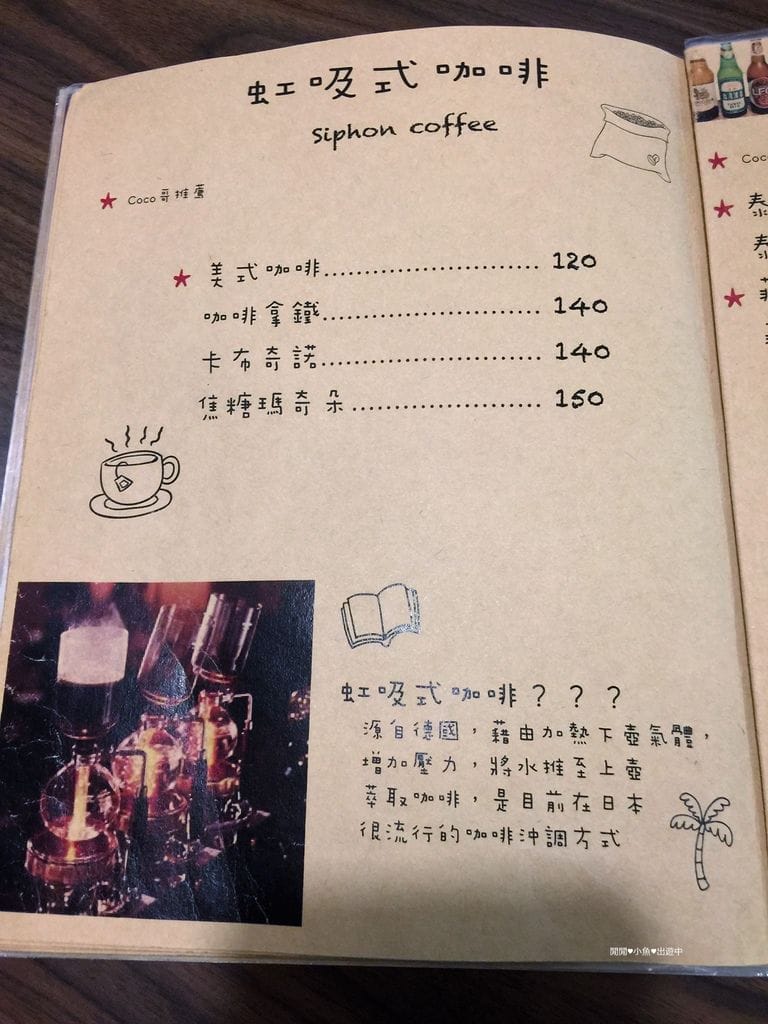 虹吸式咖啡
Siphon coffee
Coco哥推薦
美式咖啡........................... 120
咖啡拿鐵........................... 140
卡布奇諾........................... 140
焦糖瑪奇朵....................... 150
虹吸式咖啡？？？
源自德國，藉由加熱下壺氣體，
增加壓力，將水推至上壺
萃取咖啡，是目前在日本
很流行的咖啡沖調方式
閒閒♥小魚♥出遊中